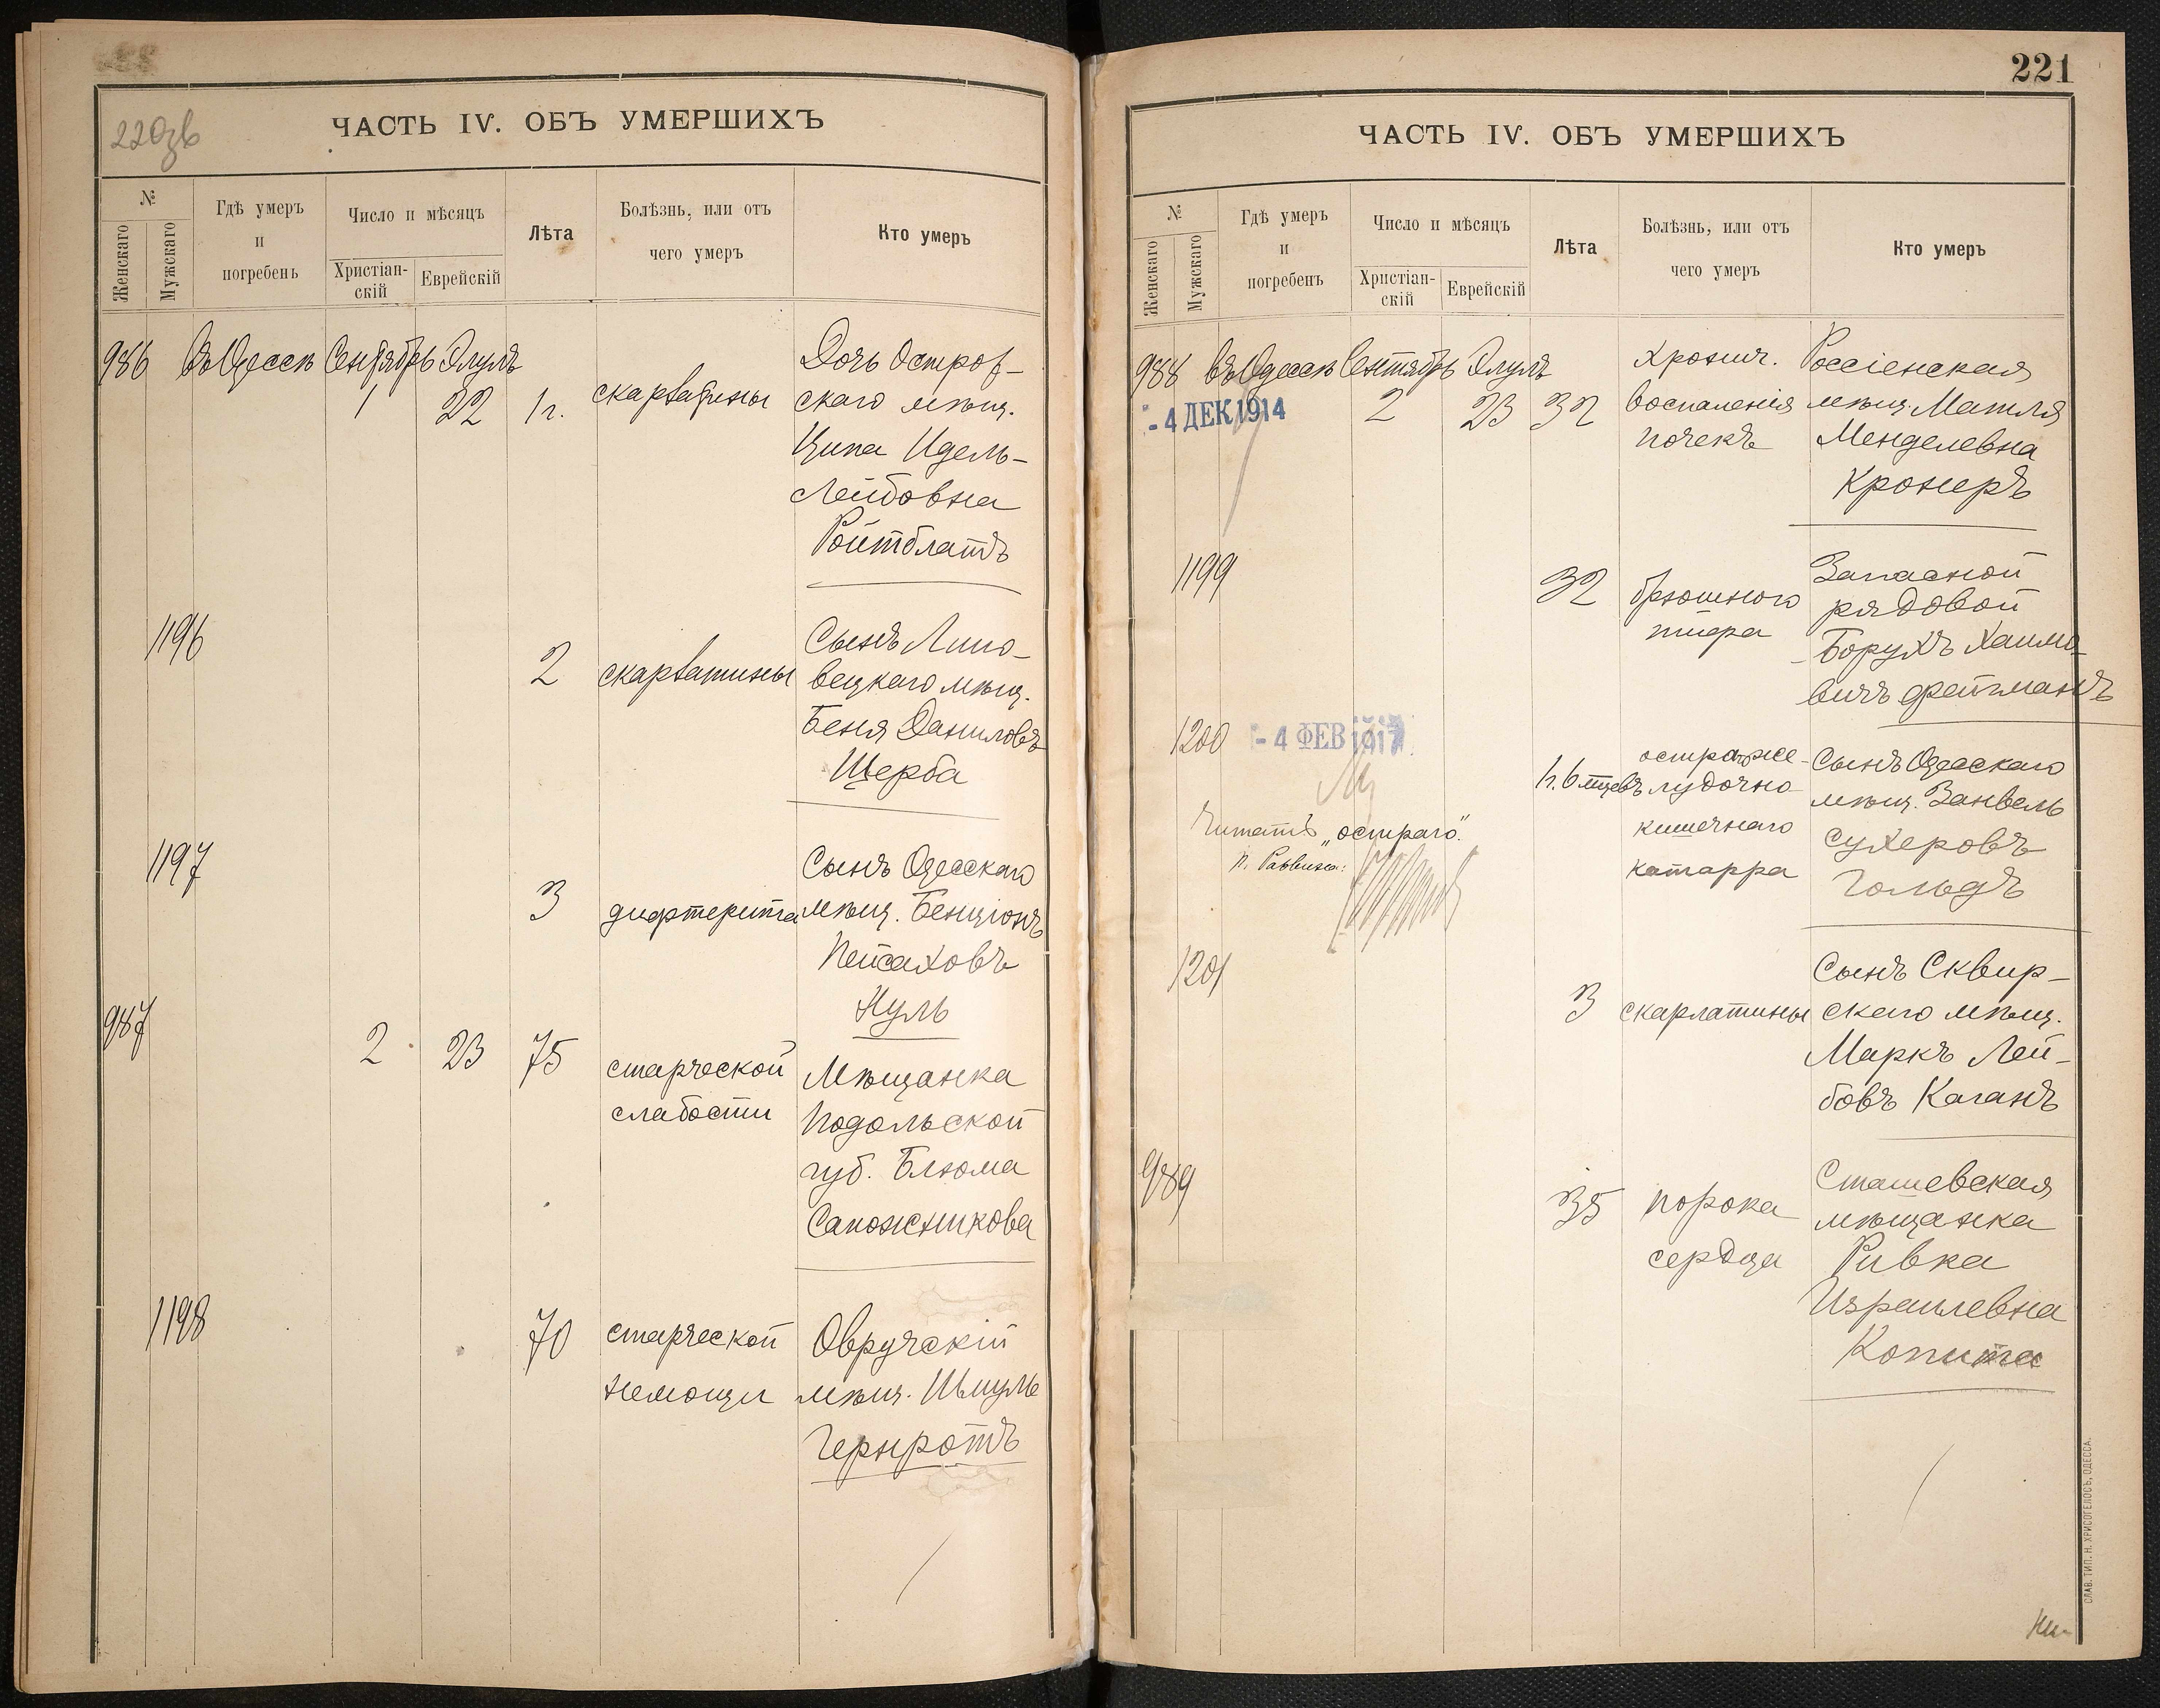 220зв
ЧАСТЬ IV. ОБЪ УМЕРШИХЪ
№
Женскаго
Мужскаго
Гдѣ умеръ
и
погребенъ
Число и мѣсяцъ
Христіан-
скій
Еврейскій
Лѣта
Болѣзнь, или отъ
чего умеръ
Кто умеръ
986 Въ Одессѣ Сентябрь Элулъ
1 22 1 г. скарлатины
Дочь Остров-
скаго мѣщ.
Ципа Идель-
Лейбовна
Ройтблатъ
1196
2 скарлатины
Сынъ Липо-
вецкаго мѣщ.
Беня Даниловъ
Щерба
1197
3 дифтерита
Сынъ Одесскаго
мѣщ. Бенціонъ
Пейсаховъ
Нуль
987
2 23 75 старческой
слабости
Мѣщанка
Подольской
губ. Блюма
Сапожникова
1198
70 старческой
немощи
Овручскій
мѣщ. Шмуль
Гернротъ
221
ЧАСТЬ IV. ОБЪ УМЕРШИХЪ
№
Женскаго
Мужскаго
Гдѣ умеръ
и
погребенъ
Число и мѣсяцъ
Христіан-
скій
Еврейскій
Лѣта
Болѣзнь, или отъ
чего умеръ
Кто умеръ
988 Въ Одессѣ Сентябрь Элулъ
- 4 ДЕК 1914
2 23 32
Хронич.
воспаленія
почекъ
Россіенская
мѣщ. Матля
Менделевна
Кронеръ
1199
32 брюшного
тифа
Запасной
рядовой
Борухъ Хаимо-
вичъ Фейгманъ
1200 - 4 ФЕВ 1917
1 г. 6 мцевъ
остраго же-
лудочно
кишечнаго
катарра
Сынъ Одесскаго
мѣщ. Занвель
Сухеровъ
Гольдъ
Читать „остраго".
п. Раввина:
1201
3 скарлатины
Сынъ Сквир-
скаго мѣщ.
Маркъ Лей-
бовъ Каганъ
989
35 порока
сердца
Сташевская
мѣщанка
Ривка
Израилевна
Копита
СЛАВ. ТИП. Н. ХРИСОГЕЛОСЪ, ОДЕССА.